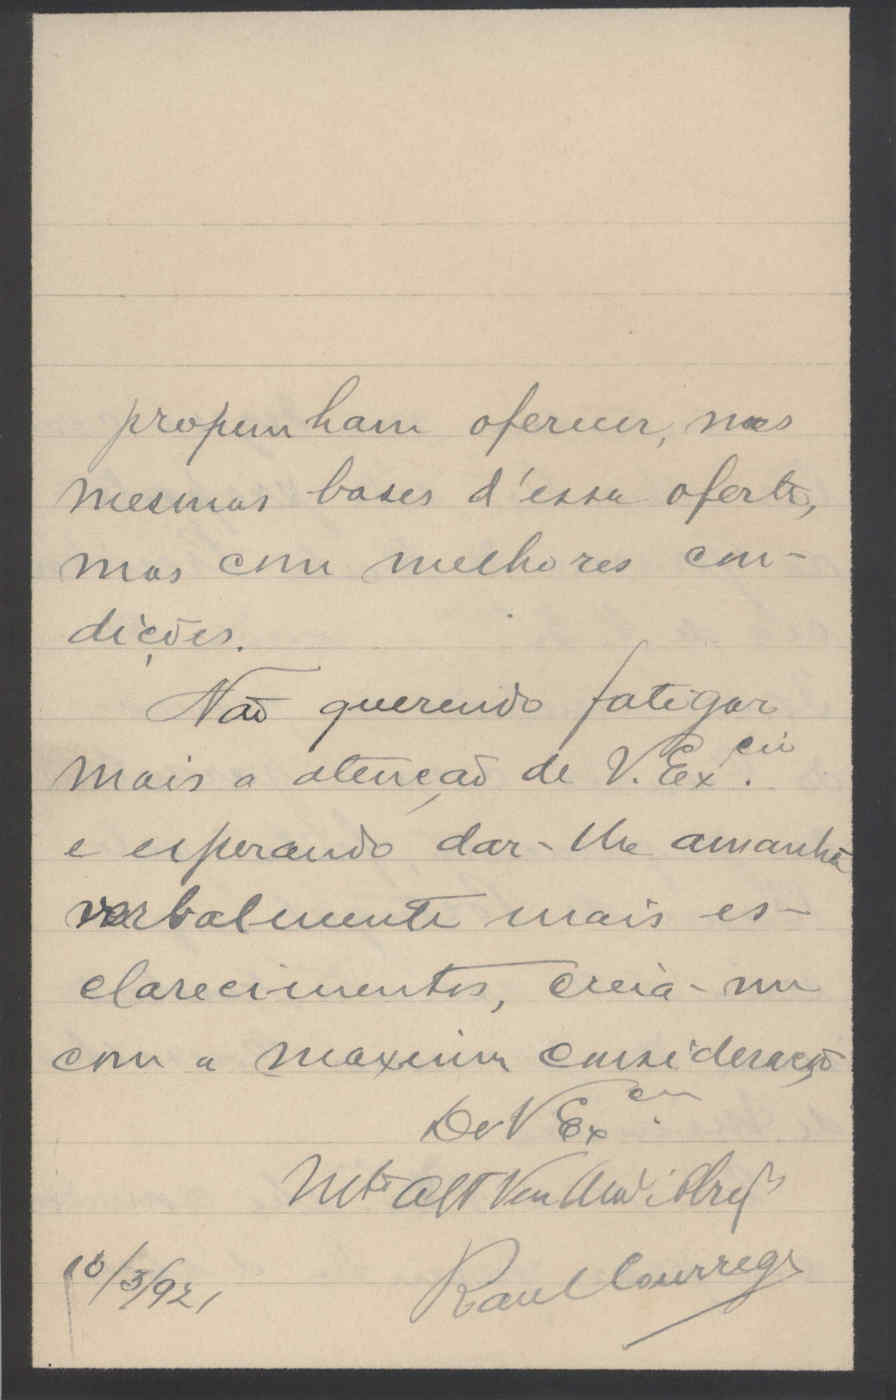 propunham oferecer, nas
mesmas bases d'essa oferta,
mas com melhores con-
dições.
Não querendo fatigar
mais a atenção de V. Ex.cia
e esperando dar-lhe amanhã
verbalmente mais es-
clarecimentos, creia-me
com a maxima consideração
De V Ex.cia
Mto Att Ven
Raul Courrege